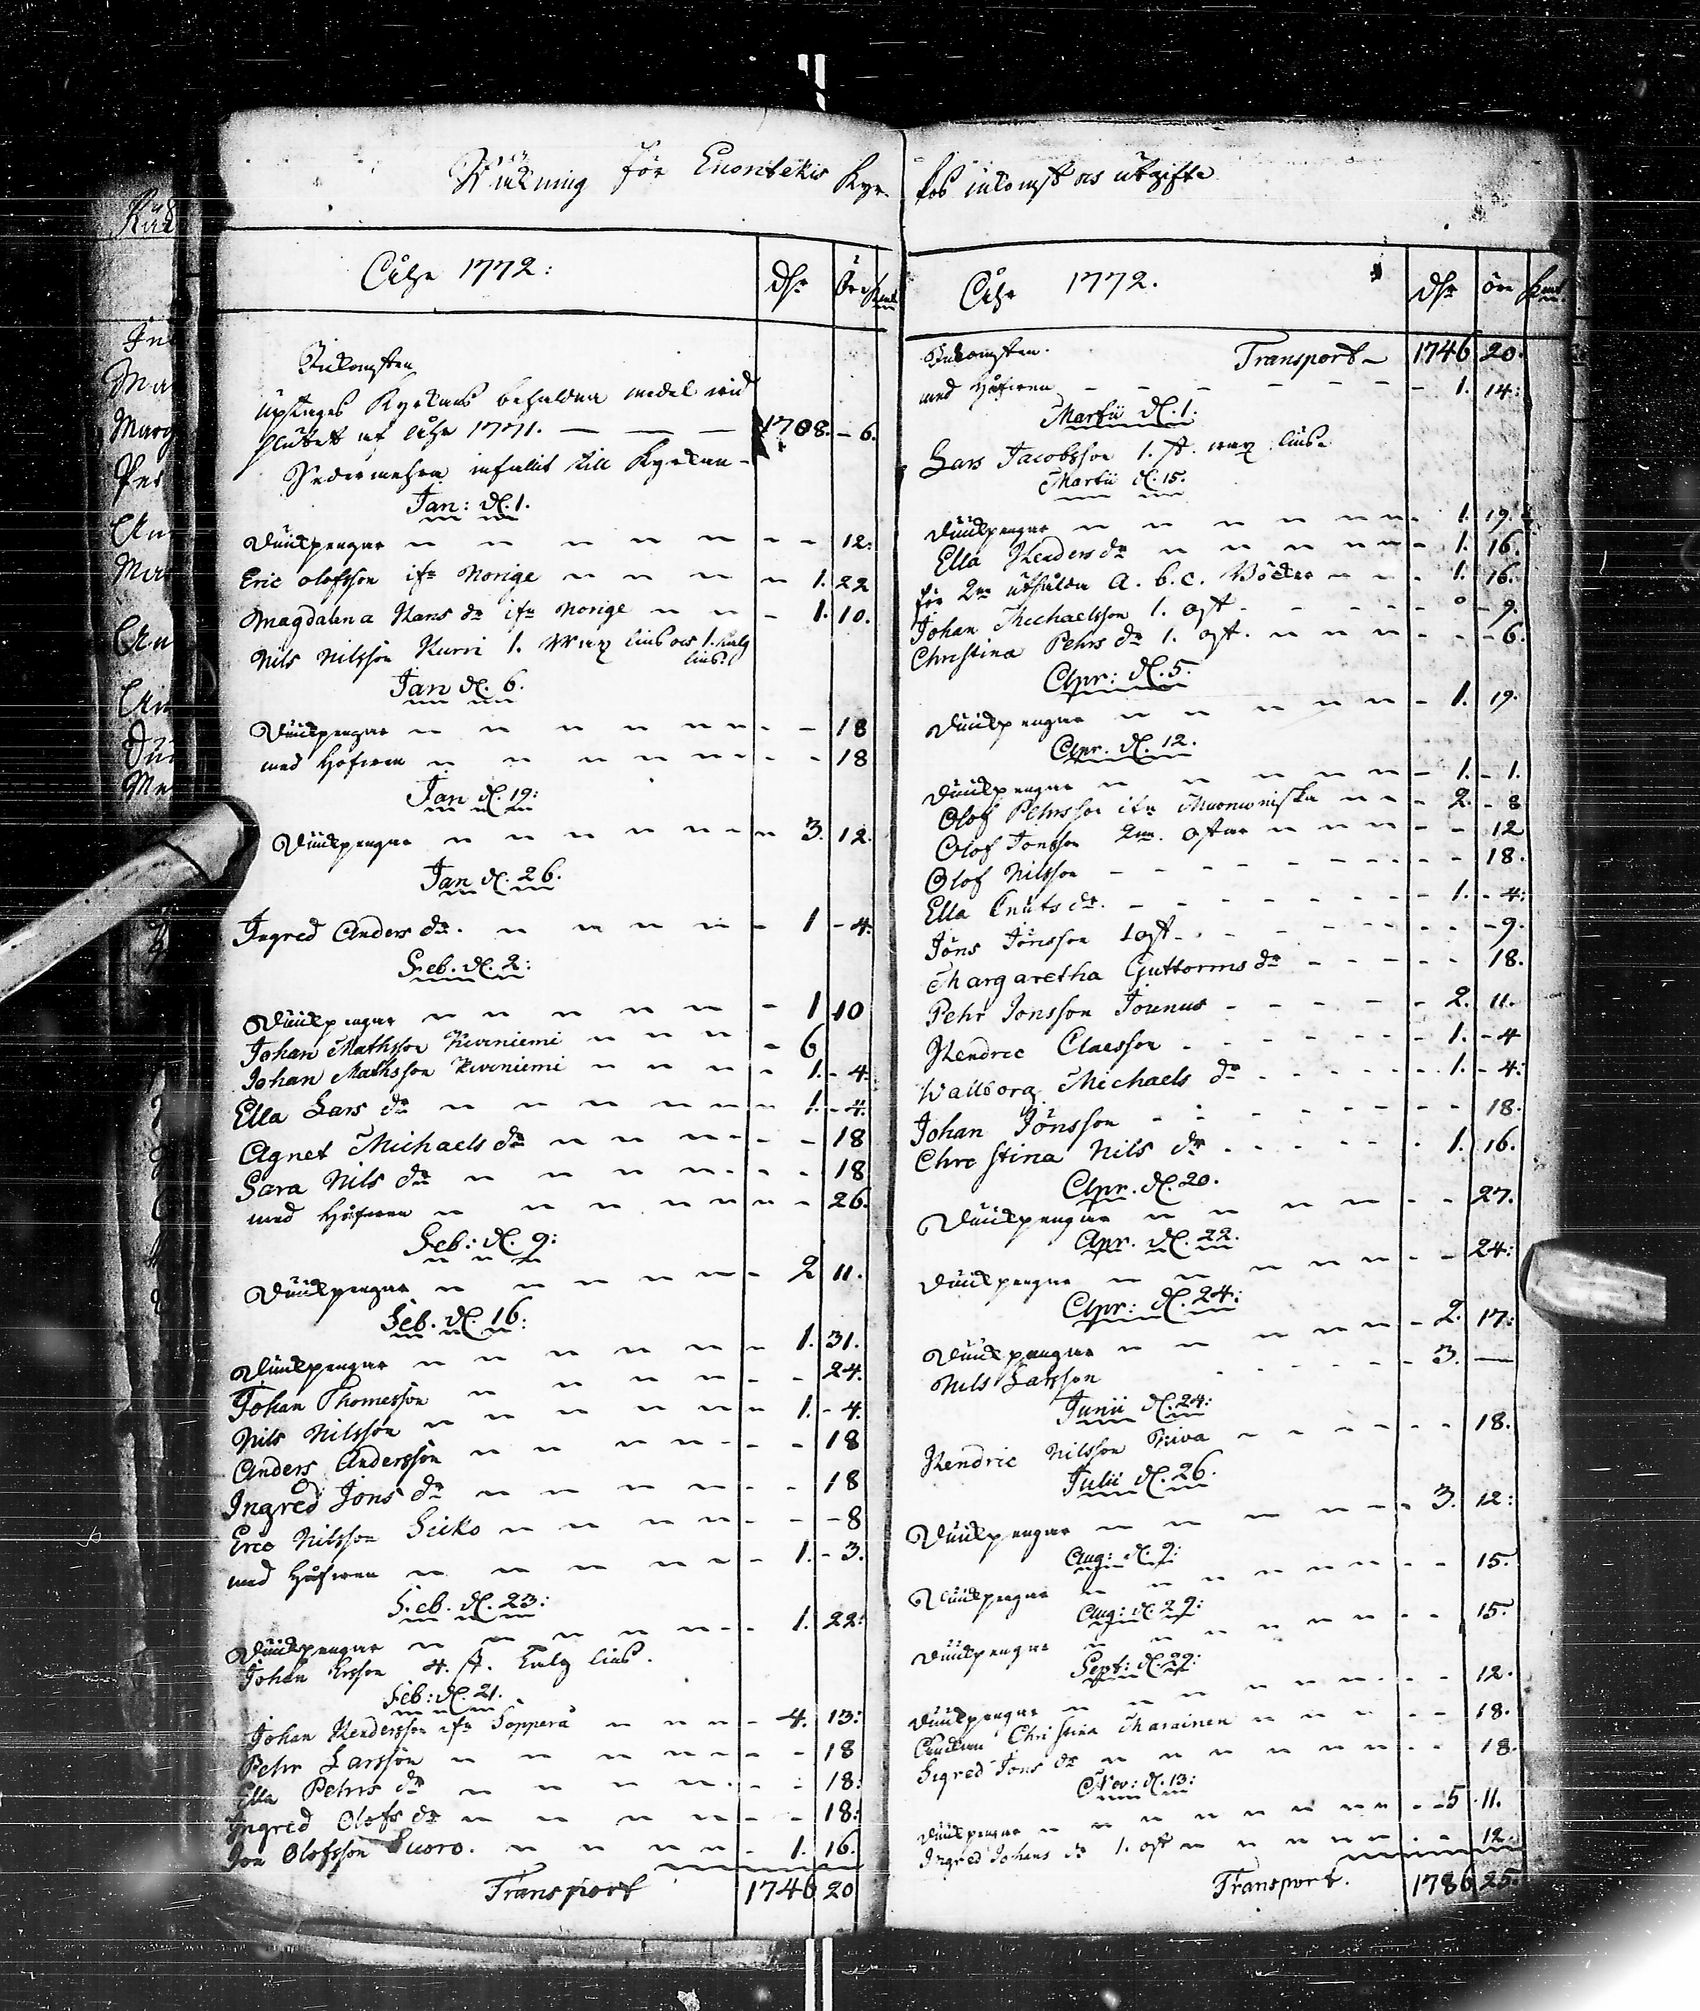 Räkning för Enontekis Kyrkos inkomst och utgifte
Åhr 1772: dhr öre
Inkomsten
Uptages Kyrkans behåldna medel wid
slutet af åhr 1771. — — — 1708. - 6.
Sedermehra infallit till Kyrkan -
Jan: d. 1.
Diuckpengar 12:
Eric Olofsson ifr Norige 1. 22
Magdalena Hans dr ifr Norige 1. 10.
Nils Nilsson Kurri 1. wax lius och 1. talg
lius.
Jan d. 6.
Diuckpengar 18
med Håfwen 18
Jan d. 19:
Diuckpengar 3. 12.
Jan d. 26.
Ingred Anders dr. 1 - 4.
Feb. d. 2:
Diuckpengar 1 10
Johan Mathsson Kuriniemi 6
Johan Mathsson Kuriniemi 1. - 4.
Ella Lars dr 1. - 4.
Agnet Michaels dr 18
Sara Nils dr 18
med Håfwen 26.
Feb: d. 9:
Diuckpengar 2 11.
Feb. d. 16:
Diuckpengar 1. 31.
Johan Thomesson 24.
Nils Nilsson 1. - 4.
Anders Andersson 18
Ingred Jons dr 18
Eric Nilsson Seiko - 8
med Håfwen 1. - 3.
Feb. d. 23:
Diuckpengar 1. 22:
Johan Ersson 4. st. Talg lius.
Feb: d. 21.
Johan Hendersson ifr Sopperå 4. 13:
Pehr Larsson 18
Ella Pehrs dr 18:
Ingred Olofs dr 18:
Jon Olofsson Suoro. 1. 16.
Transport 1746 20
Åhr 1772. dhr öre
Inkomsten. Transport 1746 20.
med Håfwen 1. 14:
Martii d. 1:
Lars Jacobsson 1. st. wax lius.
Martii d. 15.
Diuckpengar 1. 19.
Ella Henders dr 1. 16.
för 2ne utsålda A. b. c. Böcker 1. 16.
Johan Michaelsson 1. ost. - 9.
Christina Pehrs dr 1. ost. - 6.
Apr: d. 5.
Diuckpengar 1. 19.
Apr. d. 12.
Diuckpengar 1. - 1.
Olof Pehrsson ifr Muoniniska 2. - 8
Olof Jonsson 2ne. ostar 12
Olof Nilsson 18.
Ella Knuts dr. 1. - 4:
Jöns Jönsson 1 ost - 9.
Margaretha Guttorms dr 18.
Pehr Jonsson Jounus 2. 11.
Hendric Claesson 1. - 4
Walborg Michaels dr 1. - 4:
Johan Jönsson 18.
Christina Nils dr 1. 16.
Apr. d. 20.
Diuckpengar 27.
Apr. d. 22.
Diuckpengar 24:
Apr: d. 24:
Diuckpengar 2. 17:
Nils Larsson 3. —
Junii d. 24:
Hendric Nilsson 18.
Julii d. 26.
Diuckpengar 3. 12:
Aug: d. 9:
Diuckpengar 15.
Aug: d. 29:
Diuckpengar 15.
Sept: d. 29:
Diuckpengar 12.
Änckan Christina Marainen 18.
Sigred Jons dr 18.
Nov: d. 13:
Diuckpengar 5 11.
Ingred Johans dr 1. ost 12.
Transport. 1786 25.